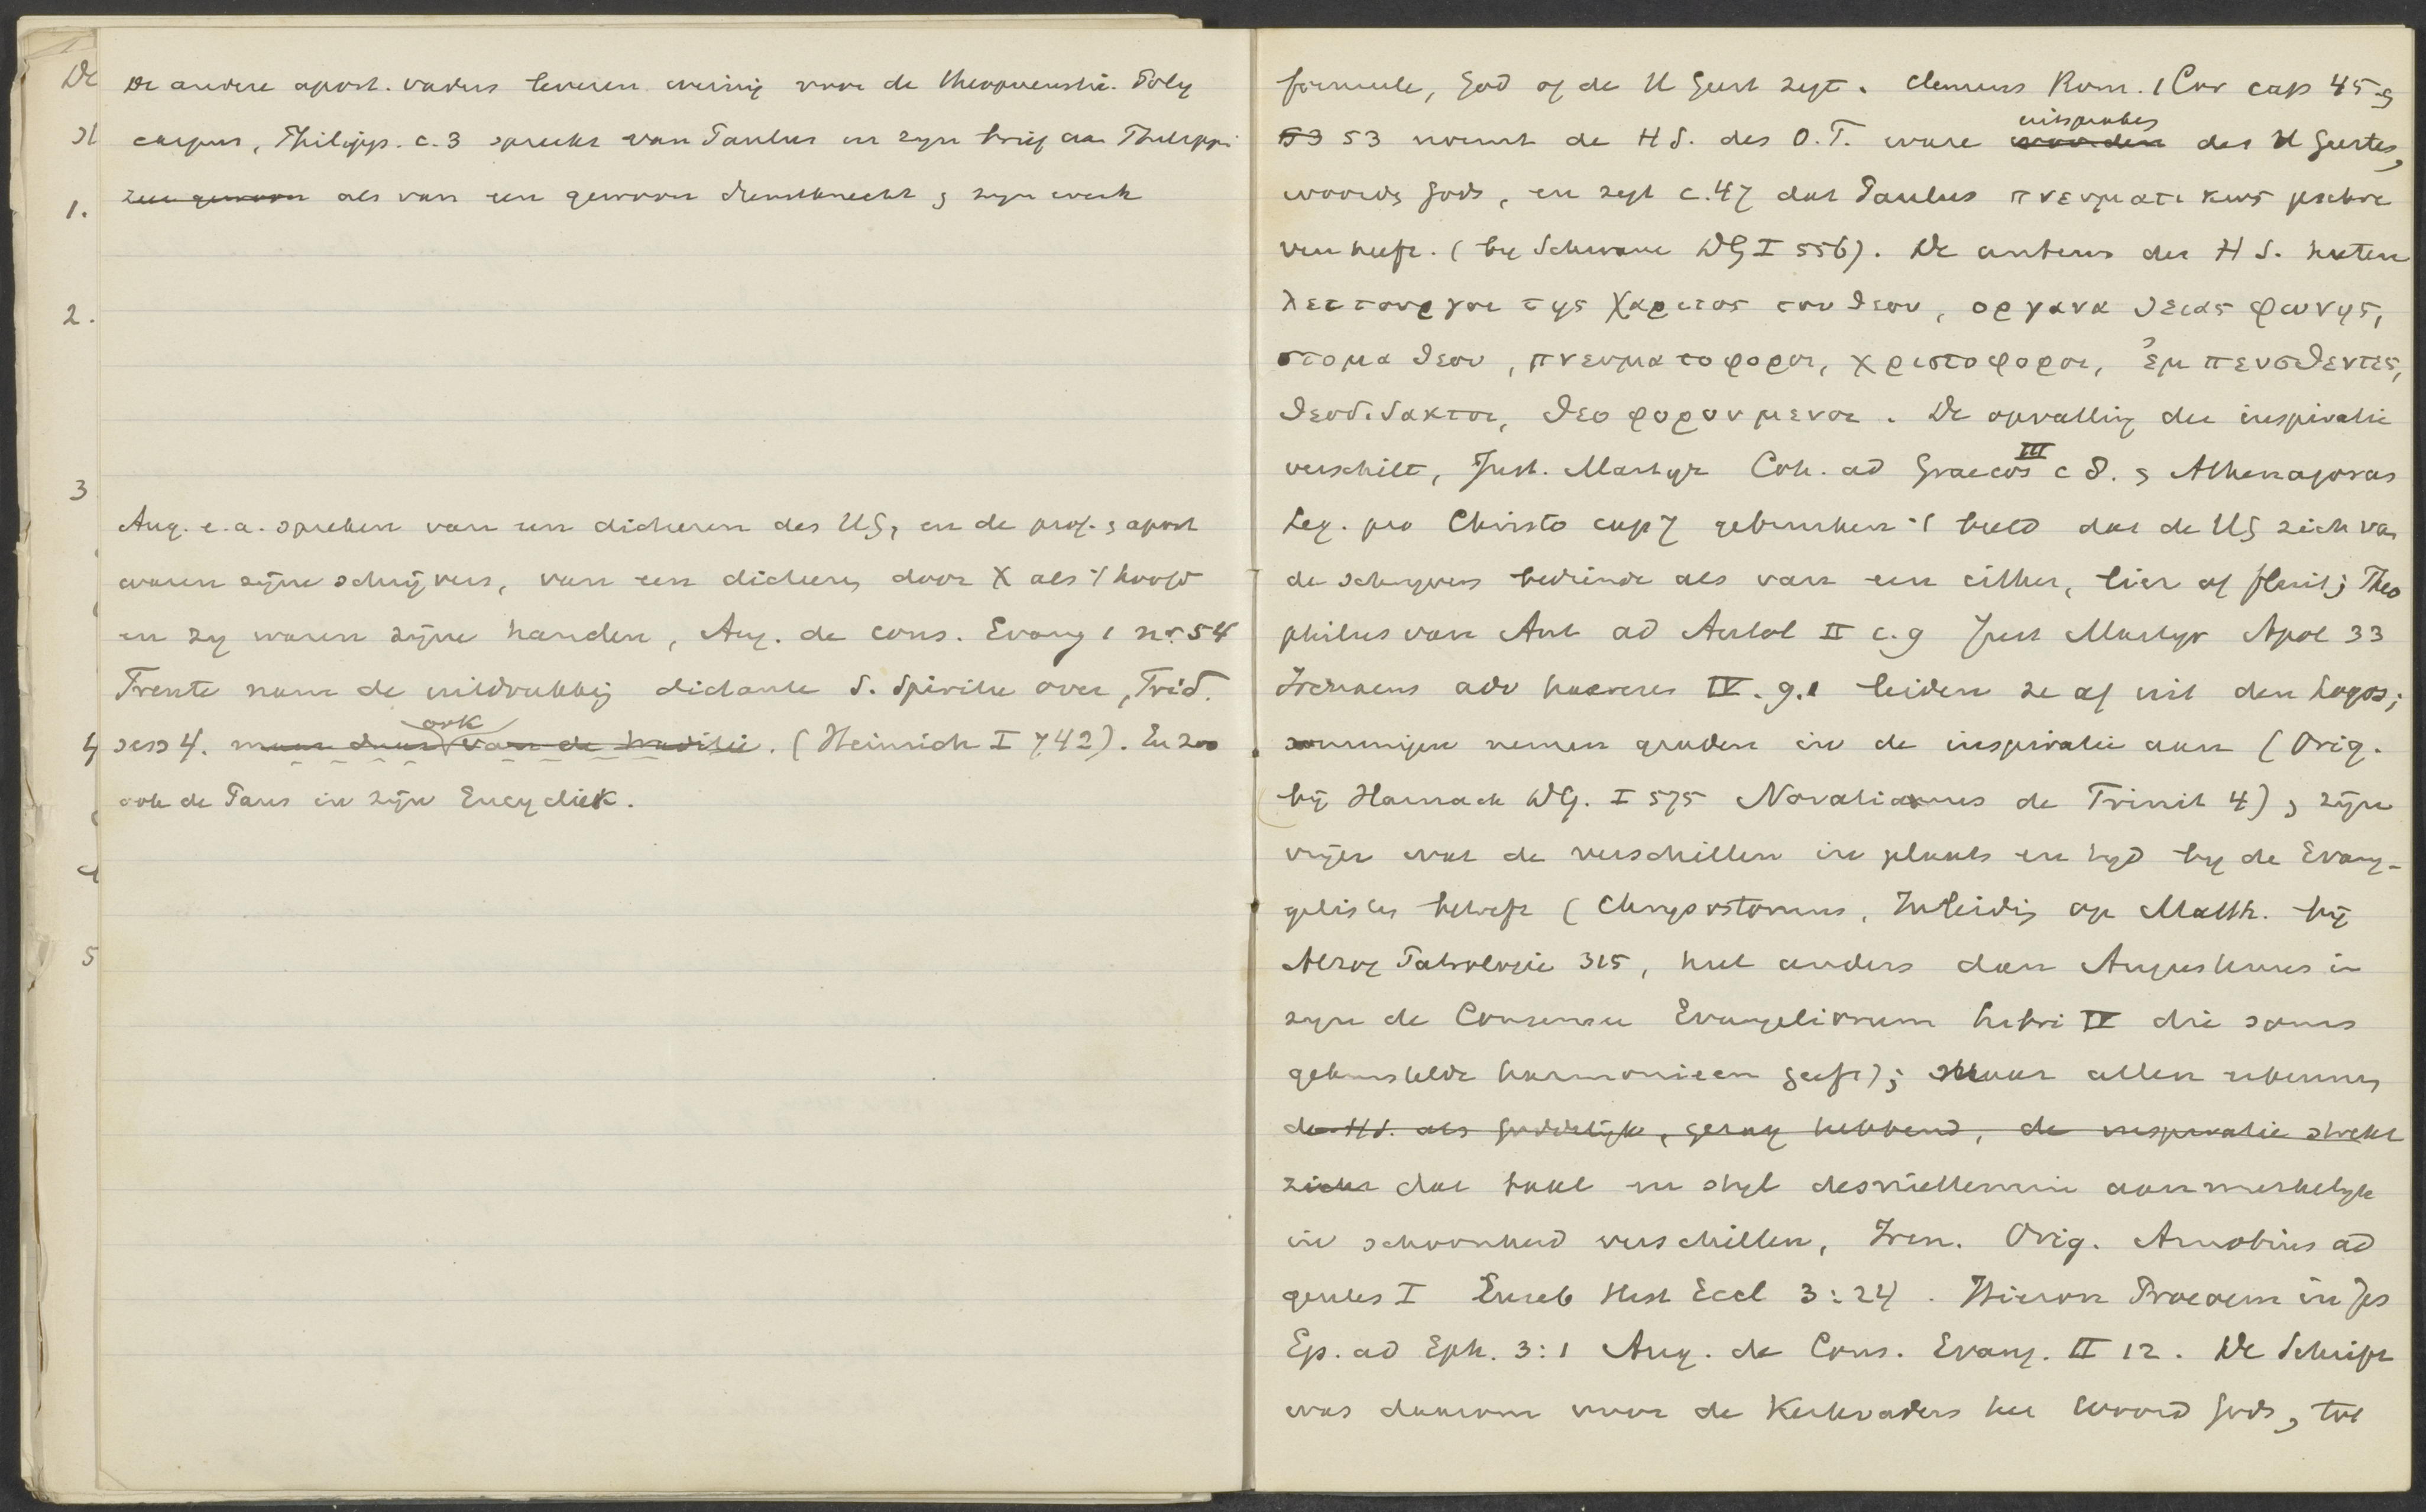 De andere apost. vaders leveren weinig voor de theopneustie. Poly
carpus, Philipp. c. 3 spreekt van Paulus en zyn brief aan Philippi
zeer gewoon als van een gewoon dienstknecht & zyn werk
Aug. e.a. spreken van een dicteeren des HG, en de prof. & apost
waren zijne schrijvers, van een dicteeren door X als 't hoofd
en zy waren zijne handen, Aug. de cons. Evang 1 no. 54
Trente nam de uitdrukking dictante S. Spiritu over, Trid.
ook
sess 4. maar dan van de traditie. (Heinrich I 742). En zoo
ook de Paus in zijn Encycliek.
De
1.
2.
3
4
5
formule, God of de H Geest zegt. Clemens Rom. 1 Cor cap 45 &
uitspraken
53 53 noemt de H S. des O.T. ware woorden des H Geestes,
woorden Gods, en zegt c. 47 dat Paulus πνευματικως geschre
ven heeft. (by Schwane DG I 556). De auteurs der H S. heeten
λειτουργοι της χαριτος του θεου, οργανα θειας φωνης,
στομα θεου, πνευματοφοροι, χριστοφοροι, ἐμπευσθεντες,
θεοδιδακτοι, θεοφορουμενοι. De opvatting der inspiratie
III
verschilt, Just. Martyr Coh. ad Graecos c 8. & Athenagoras
Leg. pro Christo cap 7 gebruiken 't beeld dat de HG zich van
de schryvers bediende als van een cither, lier of fluit; Theo
philus van Ant ad Autol II c. 9 Just Martyr Apol 33
Irenaeus adv haereses IV. 9.1 leiden ze af uit den Logos;
sommigen nemen graden in de inspiratie aan (Orig.
bij Harnack DG. I 575 Novatianus de Trinit 4), zijn
vrijer wat de verschillen in plaats en tyd by de Evang-
gelisten betreft (Chrysostomus, Inleiding op Matth. bij
Alzog Patrologie 315, heel anders dan Augustinus in
zyn de Consensu Evangeliorum libri IV die soms
gekunstelde harmonieen geeft); maar allen erkennen
de H S. als goddelijk, gezag hebbend, de inspiratie strekt
zich dat taal en styl desniettemin aanmerkelyk
in schoonheid verschillen, Iren. Orig. Arnobius ad
gentes I Euseb Hist Eccl 3:24. Hieron Prooem in Jes
Ep. ad Eph. 3:1 Aug. de Cons. Evang. II 12. De Schrift
was daarom voor de Kerkvaders het Woord Gods, tot